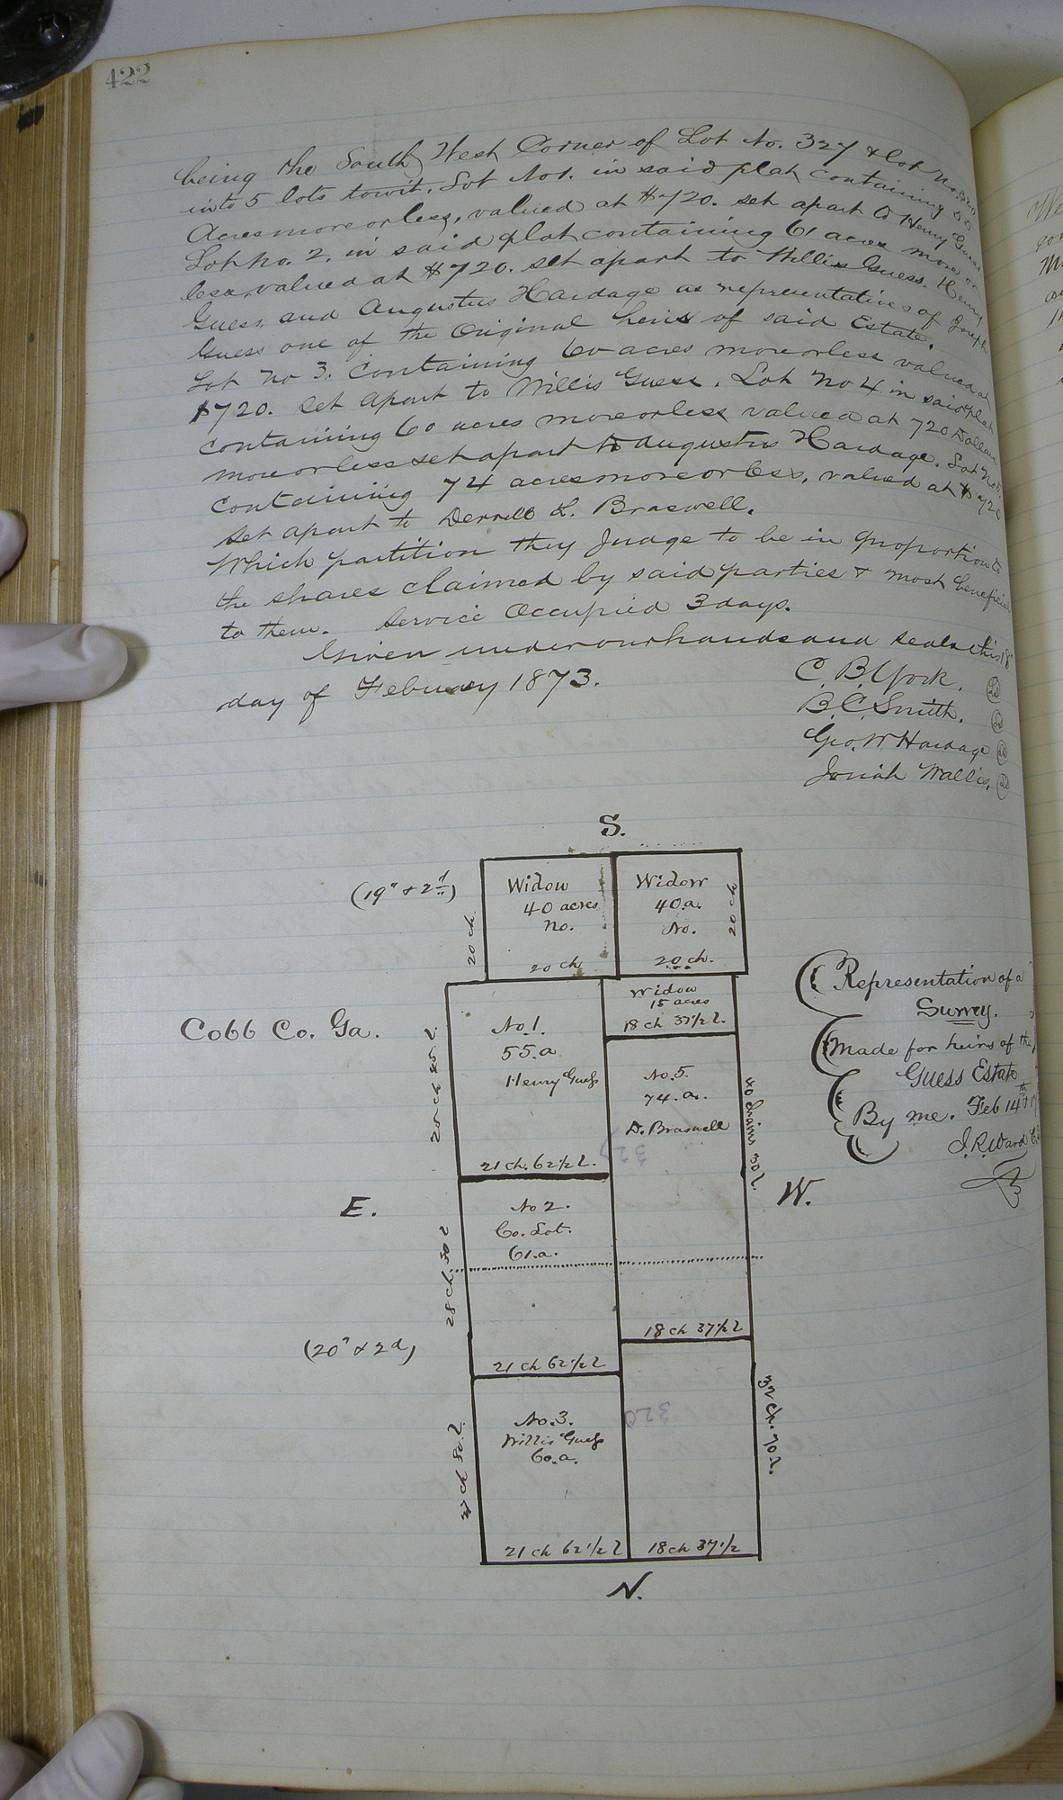 422
being the South West Corner of Lot No. 327 & lot No. 320
into 5 lots towit. Lot No 1. in said plat containing 55
Acres more or less, valued at $720. set apart to Henry Guess
Lot No. 2. in said plat containing 61 acres more or
less, valued at $720. set apart to Willis Guess. Henry
Guess, and Augustus Hardage as representatives of Joseph
Guess one of the Original heirs of said Estate.
Lot No 3. Containing 60 acres more or less valued at
$720. set apart to Willis Guess. Lot No 4 in said plat
containing 60 acres more or less valued at 720 Dollars
more or less set apart to Augustus Hardage. Lot No 5.
containing 74 acres more or less, valued at $720
set apart to Derrell L. Braswell.
Which partition they Judge to be in proportion to
the shares claimed by said parties & most beneficial
to them. Service Occupied 3 days.
Given under our hands and seals this 18"
day of Febuary 1873.
C. B. York.
B. C. Smith.
Geo. W Hardage
Josiah Wallis.
S.
(19" & 2d)
Widow
40 acres
No.
20 ch
20 ch.
Widow
40.a.
No.
20 ch.
20 ch
Cobb Co. Ga.
No. 1.
55.a
Henry Guess
21 ch. 62 1/2 l.
Widow
15 acres
18 ch 37 1/2 l.
No. 5.
74. a.
D. Braswell
327
18 ch 37 1/2 l
Representation of a
Survey.
Made for heirs of the
Guess Estate
By me. Feb 14th
J. R. Ward
E.
W.
No 2.
Co. Lot.
61.a.
28 ch. 30 l
21 ch 62 1/2 l
(20" & 2d)
No. 3.
Willis Guess
60.a.
21 ch 62 1/2 l
320
32 ch. 70 l.
18 ch 37 1/2
N.